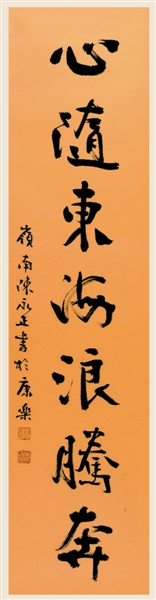 心隨東海浪騰奔
嶺南陳永正書於康樂